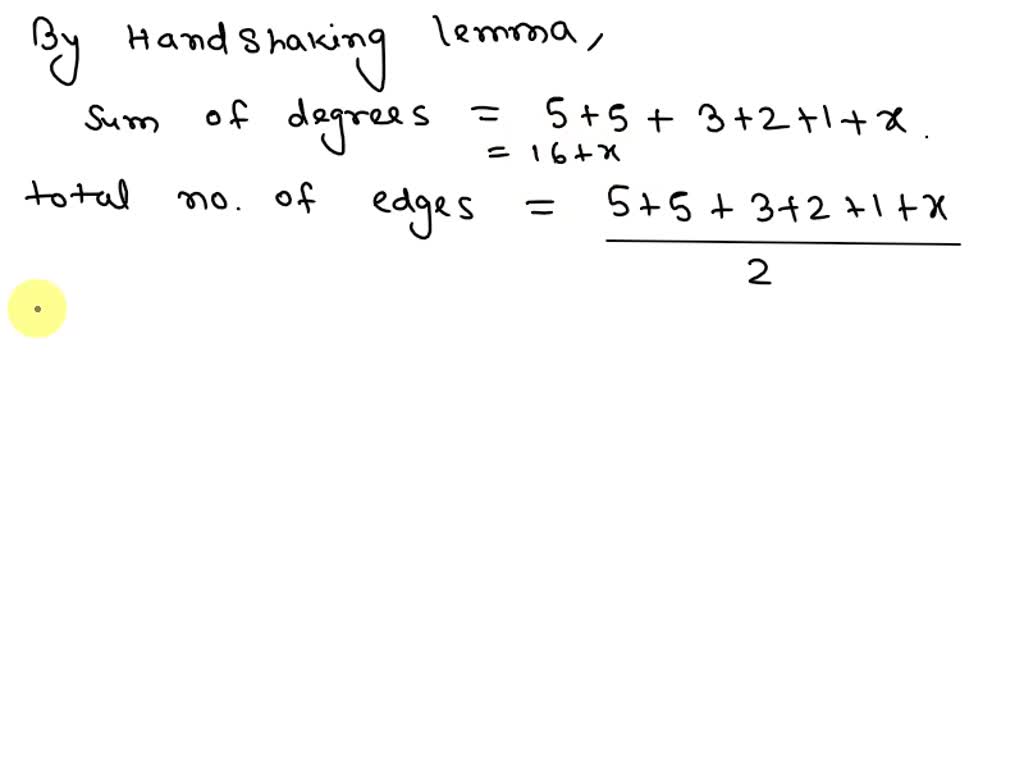 By Handshaking lemma,
sum of degrees = 5+5+3+2+1+x.
= 16+x
total no. of edges = 5+5+3+2+1+x
2